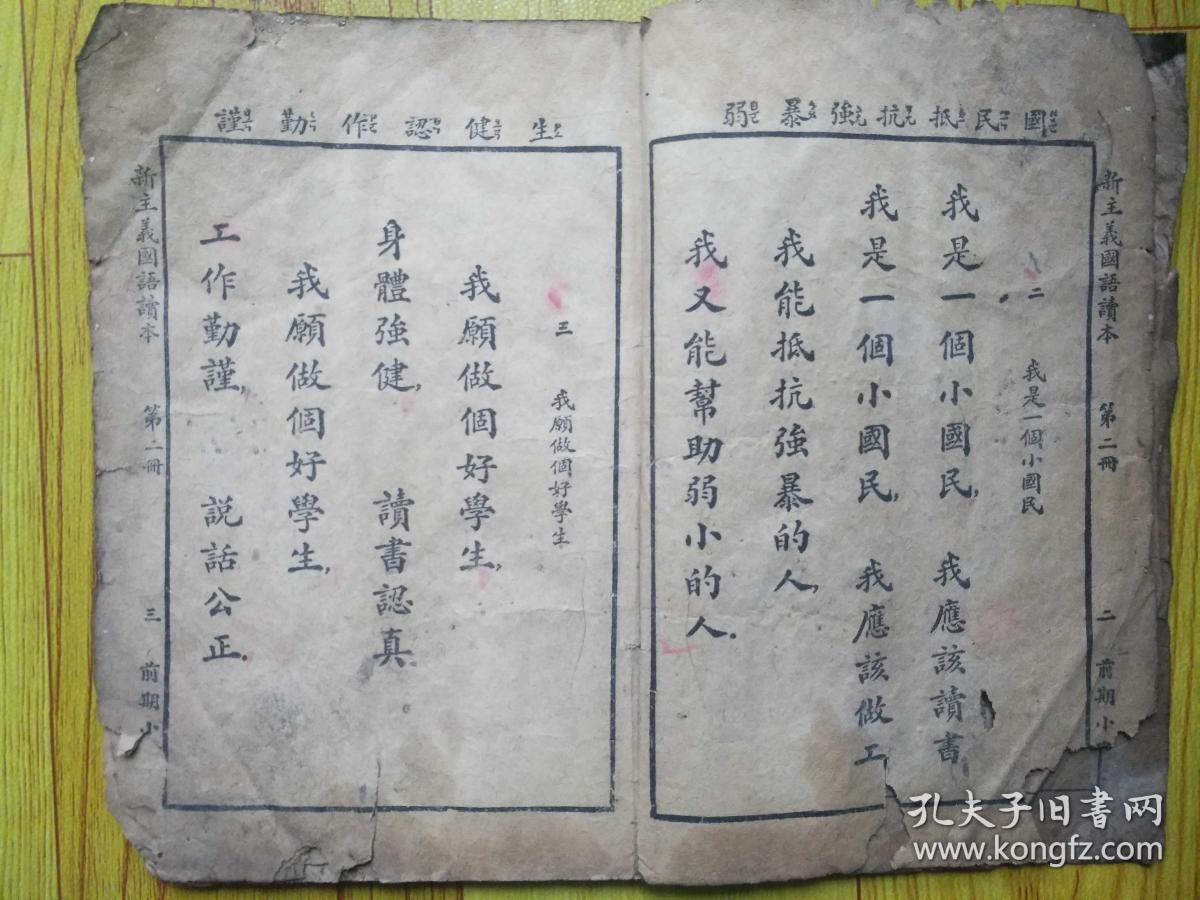 國民抵抗強暴弱
新主義國語讀本 第二冊 二 前期小
二 我是一個小國民
我是一個小國民, 我應該讀書
我是一個小國民, 我應該做工
我能抵抗強暴的人,
我又能幫助弱小的人.
生健認作勤謹
三 我願做個好學生
我願做個好學生,
身體強健, 讀書認真.
我願做個好學生,
工作勤謹, 說話公正.
新主義國語讀本 第二冊 三 前期小
孔夫子旧书网
www.kongfz.com